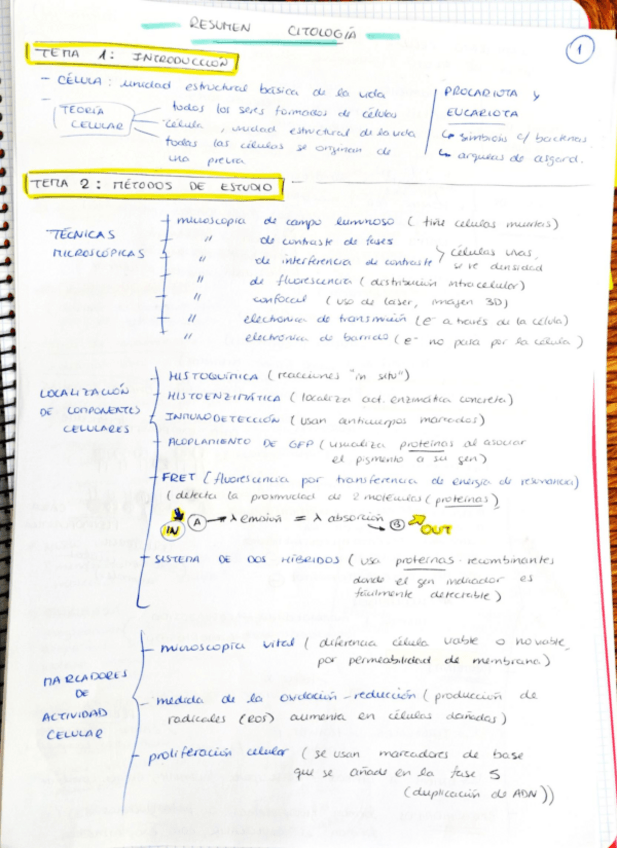 RESUMEN CITOLOGÍA
1
TEMA 1: INTRODUCCIÓN
- CÉLULA: unidad estructural básica de la vida
TEORÍA CELULAR
todos los seres formados de células
célula, unidad estructural de la vida
todas las células se originan de
una previa
PROCARIOTA Y
EUCARIOTA
↳ simbiosis c/ bacterias
↳ arqueas de asgard.
TEMA 2: MÉTODOS DE ESTUDIO
TÉCNICAS
MICROSCÓPICAS
microscopia de campo luminoso (tiñe células muertas)
" de contraste de fases
" de interferencia de contraste
células vivas,
se ve densidad
" de fluorescencia (distribución intracelular)
" confocal (uso de laser, imagen 3D)
" electronica de transmisión (e- a través de la célula)
" electronica de barrido (e- no pasa por la célula)
LOCALIZACIÓN
DE COMPONENTES
CELULARES
HISTOQUÍMICA (reacciones "in situ")
HISTOENZIMÁTICA (localiza act. enzimática concreta)
INMUNODETECCIÓN (usan anticuerpos marcados)
ACOPLAMIENTO DE GFP (visualiza proteínas al asociar
el pigmento a su gen)
FRET (fluorescencia por transferencia de energía de resonancia)
(detecta la proximidad de 2 moléculas (proteínas)
IN A → λ emisión = λ absorción → B OUT
SISTEMA DE DOS HÍBRIDOS (usa proteínas recombinantes
donde el gen indicador es
fácilmente detectable)
MARCADORES
DE
ACTIVIDAD
CELULAR
microscopia vital (diferencia célula viable o no viable,
por permeabilidad de membrana)
- medida de la oxidación-reducción (producción de
radicales (ROS) aumenta en células dañadas)
proliferación celular (se usan marcadores de base
que se añade en la fase S
(duplicación de ADN))